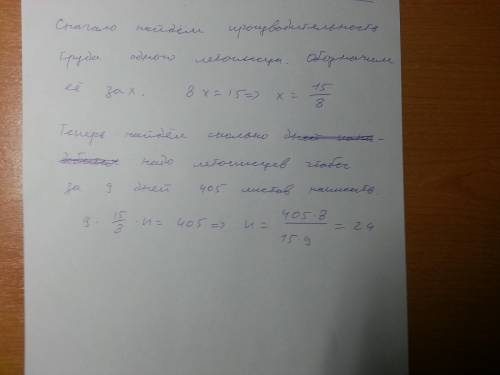 Сначало найдём производительность
труда одного летописца. Обозначим
её за x. 8x=15 => x = 15/8
Теперь найдём сколько
надо летописцев чтобы
за 9 дней 405 листов написать.
9 · 15/8 · n = 405 => n = 405·8/15·9 = 24